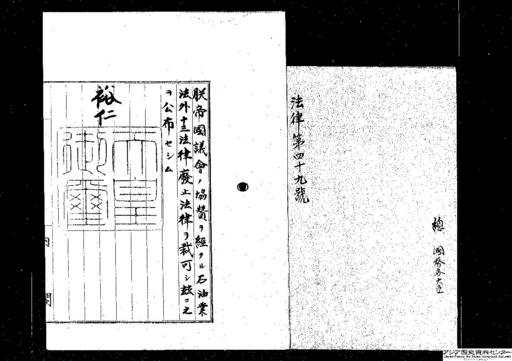 法律第四十九號
國務各大臣
朕帝國議會ノ協贊ヲ經タル石油業
法外十三法律廢止法律ヲ裁可シ玆ニ之
ヲ公布セシム
裕仁
天皇
御璽
内閣
アジア歴史資料センター